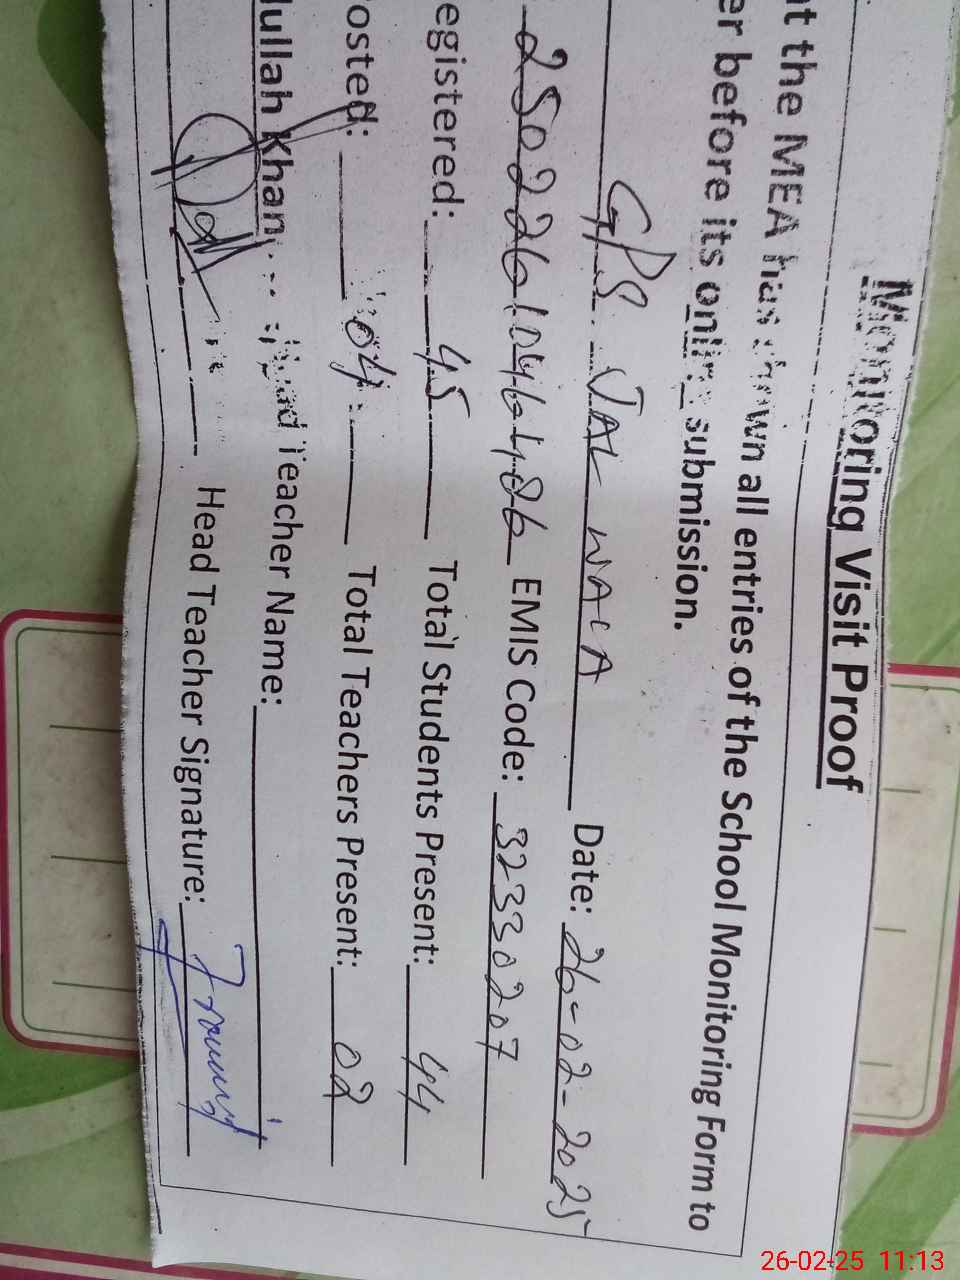 Monitoring Visit Proof
at the MEA has shown all entries of the School Monitoring Form to
er before its online submission.
GPS JAL WALA Date: 26-02-2025
EMIS Code: 32330207
egistered: 45 Total Students Present: 44
osted: 04 Total Teachers Present: 02
ullah Khan Head Teacher Name:
Head Teacher Signature:
26-02-25 11:13